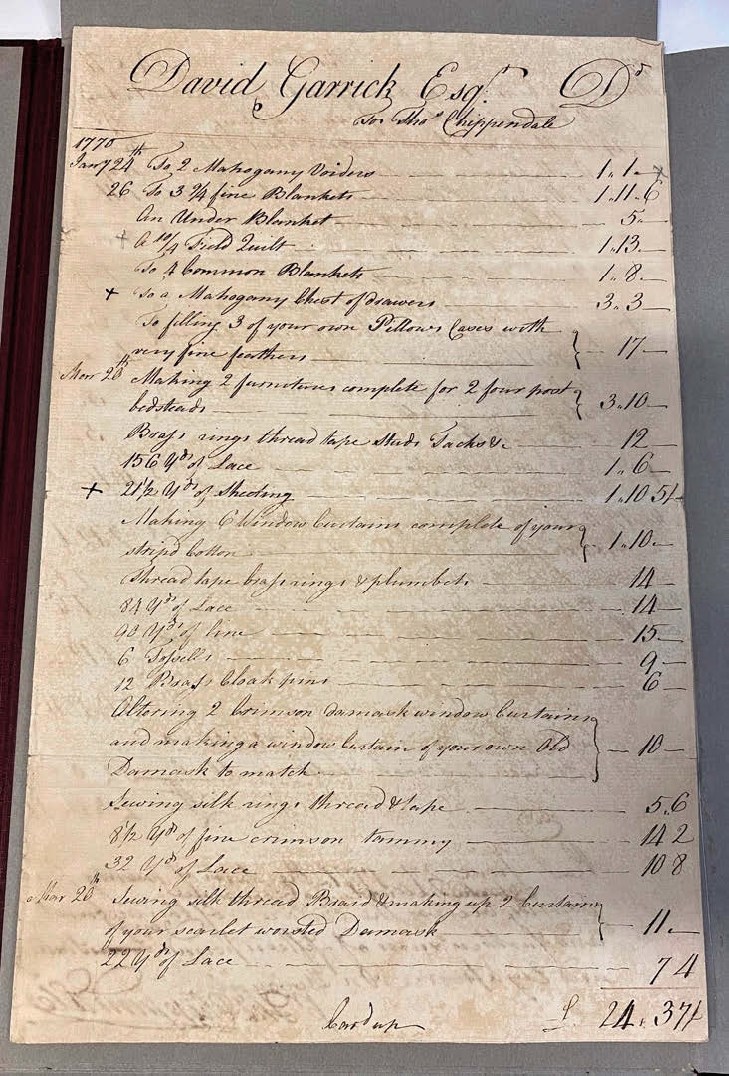 David Garrick Esqr. Dr
To Thos Chippendale
1770
Jany 24th To 2 Mahogany Voiders 1„1„—
26 To 3 9/4 fine Blankets 1„11„6
An Under Blanket 5„—
+ A 10/4 Field Quilt 1„13„—
To 4 Common Blankets 1„8„—
+ To a Mahogany Chest of drawers 3„3—
To filling 3 of your own Pillow Cases with
very fine feathers } 17—
Mar 20th Making 2 furnitures complete for 2 four post
bedsteads } 3„10—
Brass rings thread tape Studs Tacks &c 12—
156 Yds of Lace 1„6—
+ 21 1/2 Yds of Sheeting 1„10 5 1/2
Making 6 Window Curtains complete of your
strip'd Cotton } 1„10—
Thread tape brass rings & plumbets 14—
84 Yds of Lace 14—
90 Yds of line 15—
6 Tossells 9—
12 Brass Cloak pins 6—
Altering 2 Crimson damask window Curtains
and making a window Curtain of your own Old
Damask to match } 10—
Sewing silk rings thread & tape 5„6
8 1/2 Yds of fine crimson tammy 14 2
32 Yds of Lace 10 8
Mar 20th Sewing silk thread Braid & making up 2 Curtains
of your scarlet worsted Damask } 11„—
22 Yds of Lace 7 4
Card up £ 24„3 7 1/2